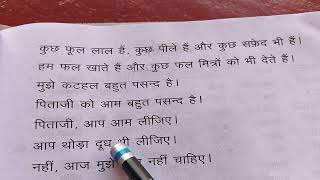 कुछ फूल लाल हैं, कुछ पीले हैं और कुछ सफ़ेद भी हैं।
हम फल खाते हैं और कुछ फल मित्रों को भी देते हैं।
मुझे कटहल बहुत पसन्द है।
पिताजी को आम बहुत पसन्द है।
पिताजी, आप आम लीजिए।
आप थोड़ा दूध भी लीजिए।
नहीं, आज मुझे नहीं चाहिए।